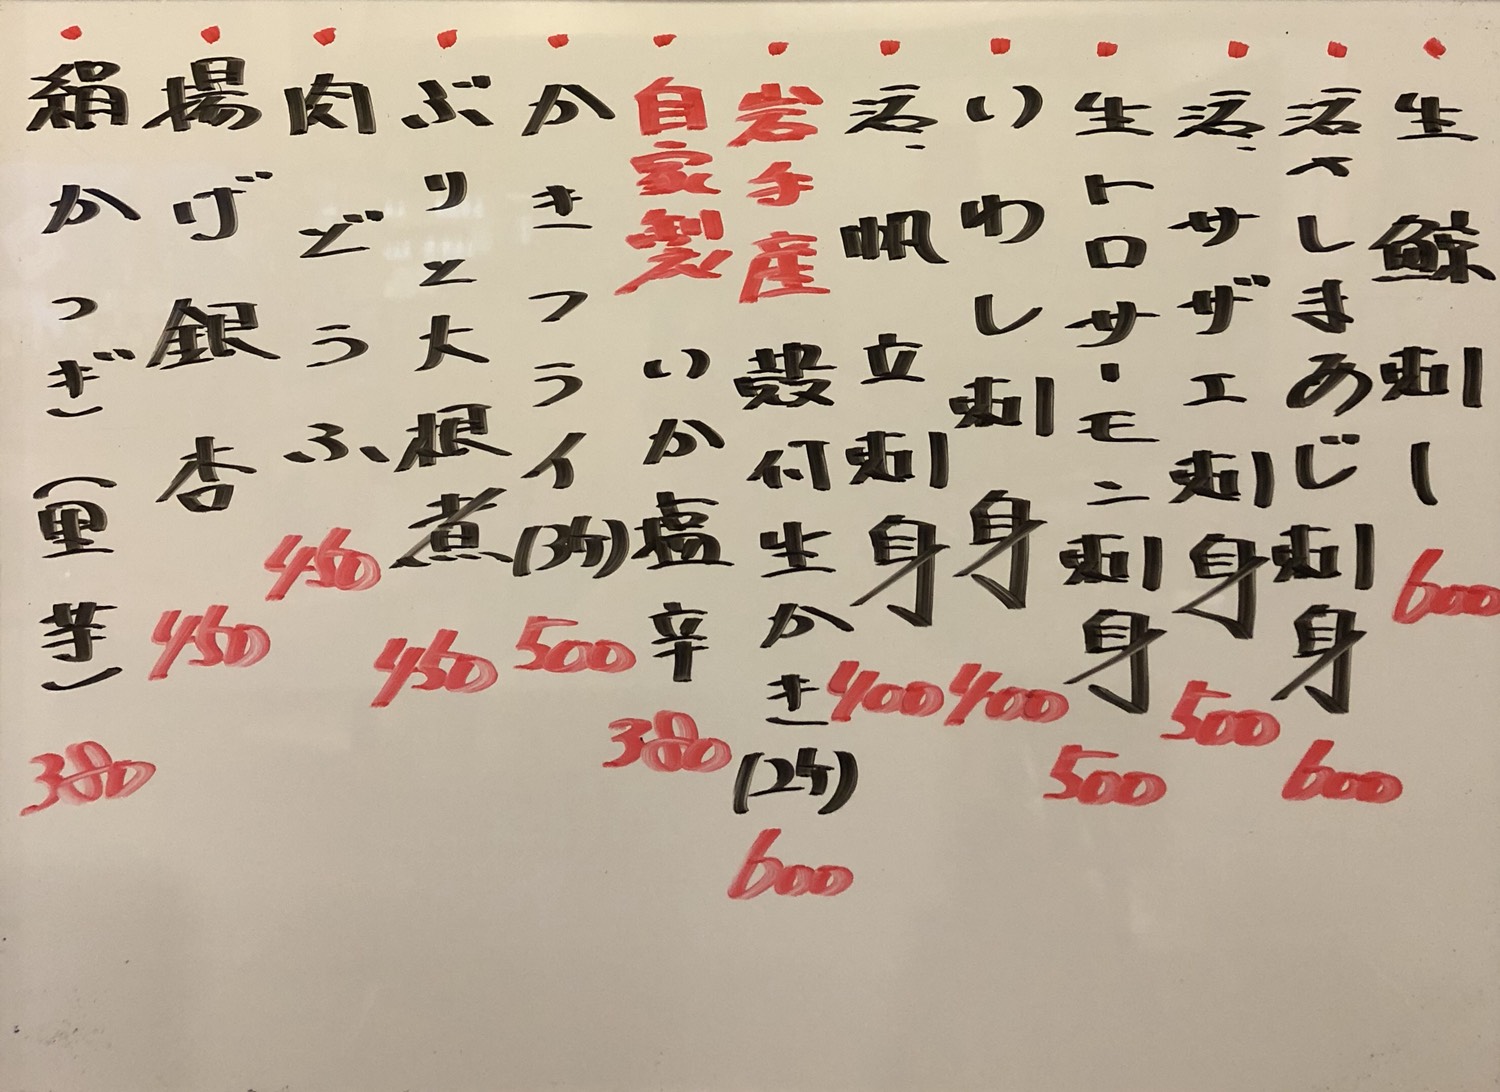 ・生鯨刺し 600
・活〆しまあじ刺身 600
・活サザエ刺身 500
・生トロサーモン刺身 500
・いわし刺身 400
・活帆立刺身 400
・岩手産 殻付生かき(2ケ) 600
・自家製 いか塩辛 380
・かきフライ(3ケ) 500
・ぶりと大根煮 450
・肉どうふ 450
・揚げ銀杏 450
・絹かつぎ(里芋) 380